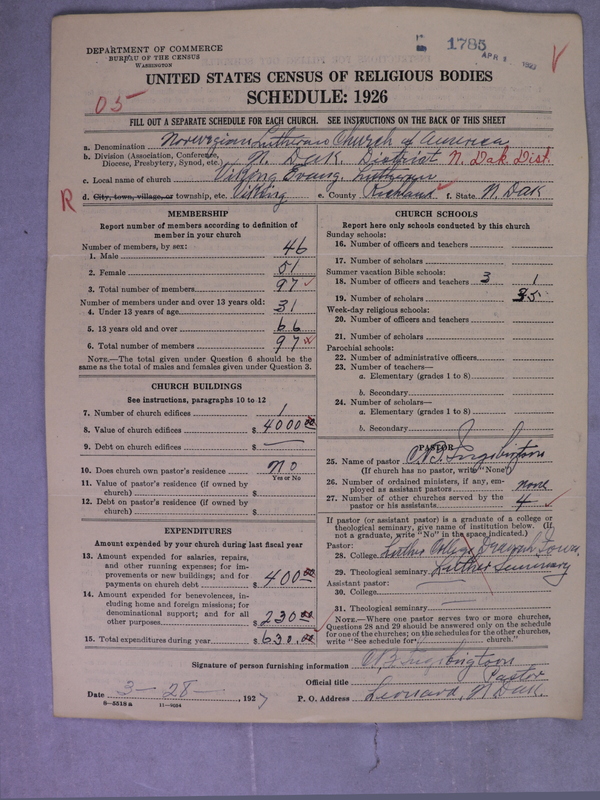 DEPARTMENT OF COMMERCE
BUREAU OF THE CENSUS
WASHINGTON
1785
APR 1 1927
UNITED STATES CENSUS OF RELIGIOUS BODIES
SCHEDULE: 1926
05
FILL OUT A SEPARATE SCHEDULE FOR EACH CHURCH. SEE INSTRUCTIONS ON THE BACK OF THIS SHEET
a. Denomination Norwegian Lutheran Church of America
b. Division (Association, Conference, Diocese, Presbytery, Synod, etc.) N. Dak. District N. Dak. Dist.
c. Local name of church Viking Evang. Lutheran
R
d. City, town, village, or township, etc. Viking e. County Richland f. State N. Dak
MEMBERSHIP
Report number of members according to definition of member in your church
Number of members, by sex:
1. Male 46
2. Female 51
3. Total number of members 97
Number of members under and over 13 years old:
4. Under 13 years of age 31
5. 13 years old and over 66
6. Total number of members 97
NOTE.—The total given under Question 6 should be the same as the total of males and females given under Question 3.
CHURCH BUILDINGS
See instructions, paragraphs 10 to 12
7. Number of church edifices 1
8. Value of church edifices $ 4000.00
9. Debt on church edifices $ —
10. Does church own pastor's residence No
Yes or No
11. Value of pastor's residence (if owned by church) $
12. Debt on pastor's residence (if owned by church) $
EXPENDITURES
Amount expended by your church during last fiscal year
13. Amount expended for salaries, repairs, and other running expenses; for improvements or new buildings; and for payments on church debt $ 400.00
14. Amount expended for benevolences, including home and foreign missions; for denominational support; and for all other purposes $ 230.00
15. Total expenditures during year $ 630.00
CHURCH SCHOOLS
Report here only schools conducted by this church
Sunday schools:
16. Number of officers and teachers
17. Number of scholars
Summer vacation Bible schools:
18. Number of officers and teachers 3 1
19. Number of scholars
Week-day religious schools:
20. Number of officers and teachers
21. Number of scholars
Parochial schools:
22. Number of administrative officers
23. Number of teachers—
a. Elementary (grades 1 to 8)
b. Secondary
24. Number of scholars—
a. Elementary (grades 1 to 8)
b. Secondary
PASTOR
25. Name of pastor
(If church has no pastor, write "None")
26. Number of ordained ministers, if any, employed as assistant pastors none
27. Number of other churches served by the pastor or his assistants 4
If pastor (or assistant pastor) is a graduate of a college or theological seminary, give name of institution below. (If not a graduate, write "No" in the space indicated.)
Pastor:
28. College Luther College Decorah Iowa
29. Theological seminary Luther Seminary
Assistant pastor:
30. College
31. Theological seminary
NOTE.—Where one pastor serves two or more churches, Questions 28 and 29 should be answered only on the schedule for one of the churches; on the schedules for the other churches, write "See schedule for church."
Signature of person furnishing information
Official title Pastor
Date 3-28-, 1927
P. O. Address Leonard, N Dak.
8-5518 a 11-9034